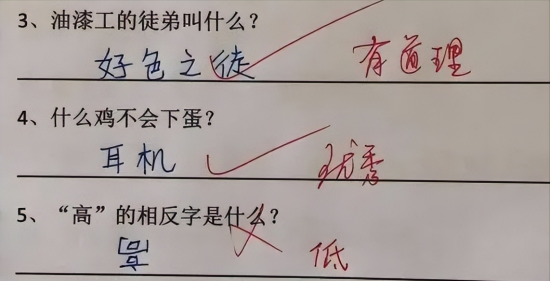 3、油漆工的徒弟叫什么？
好色之徒 有道理
4、什么鸡不会下蛋？
耳机 优秀
5、“高”的相反字是什么？
低